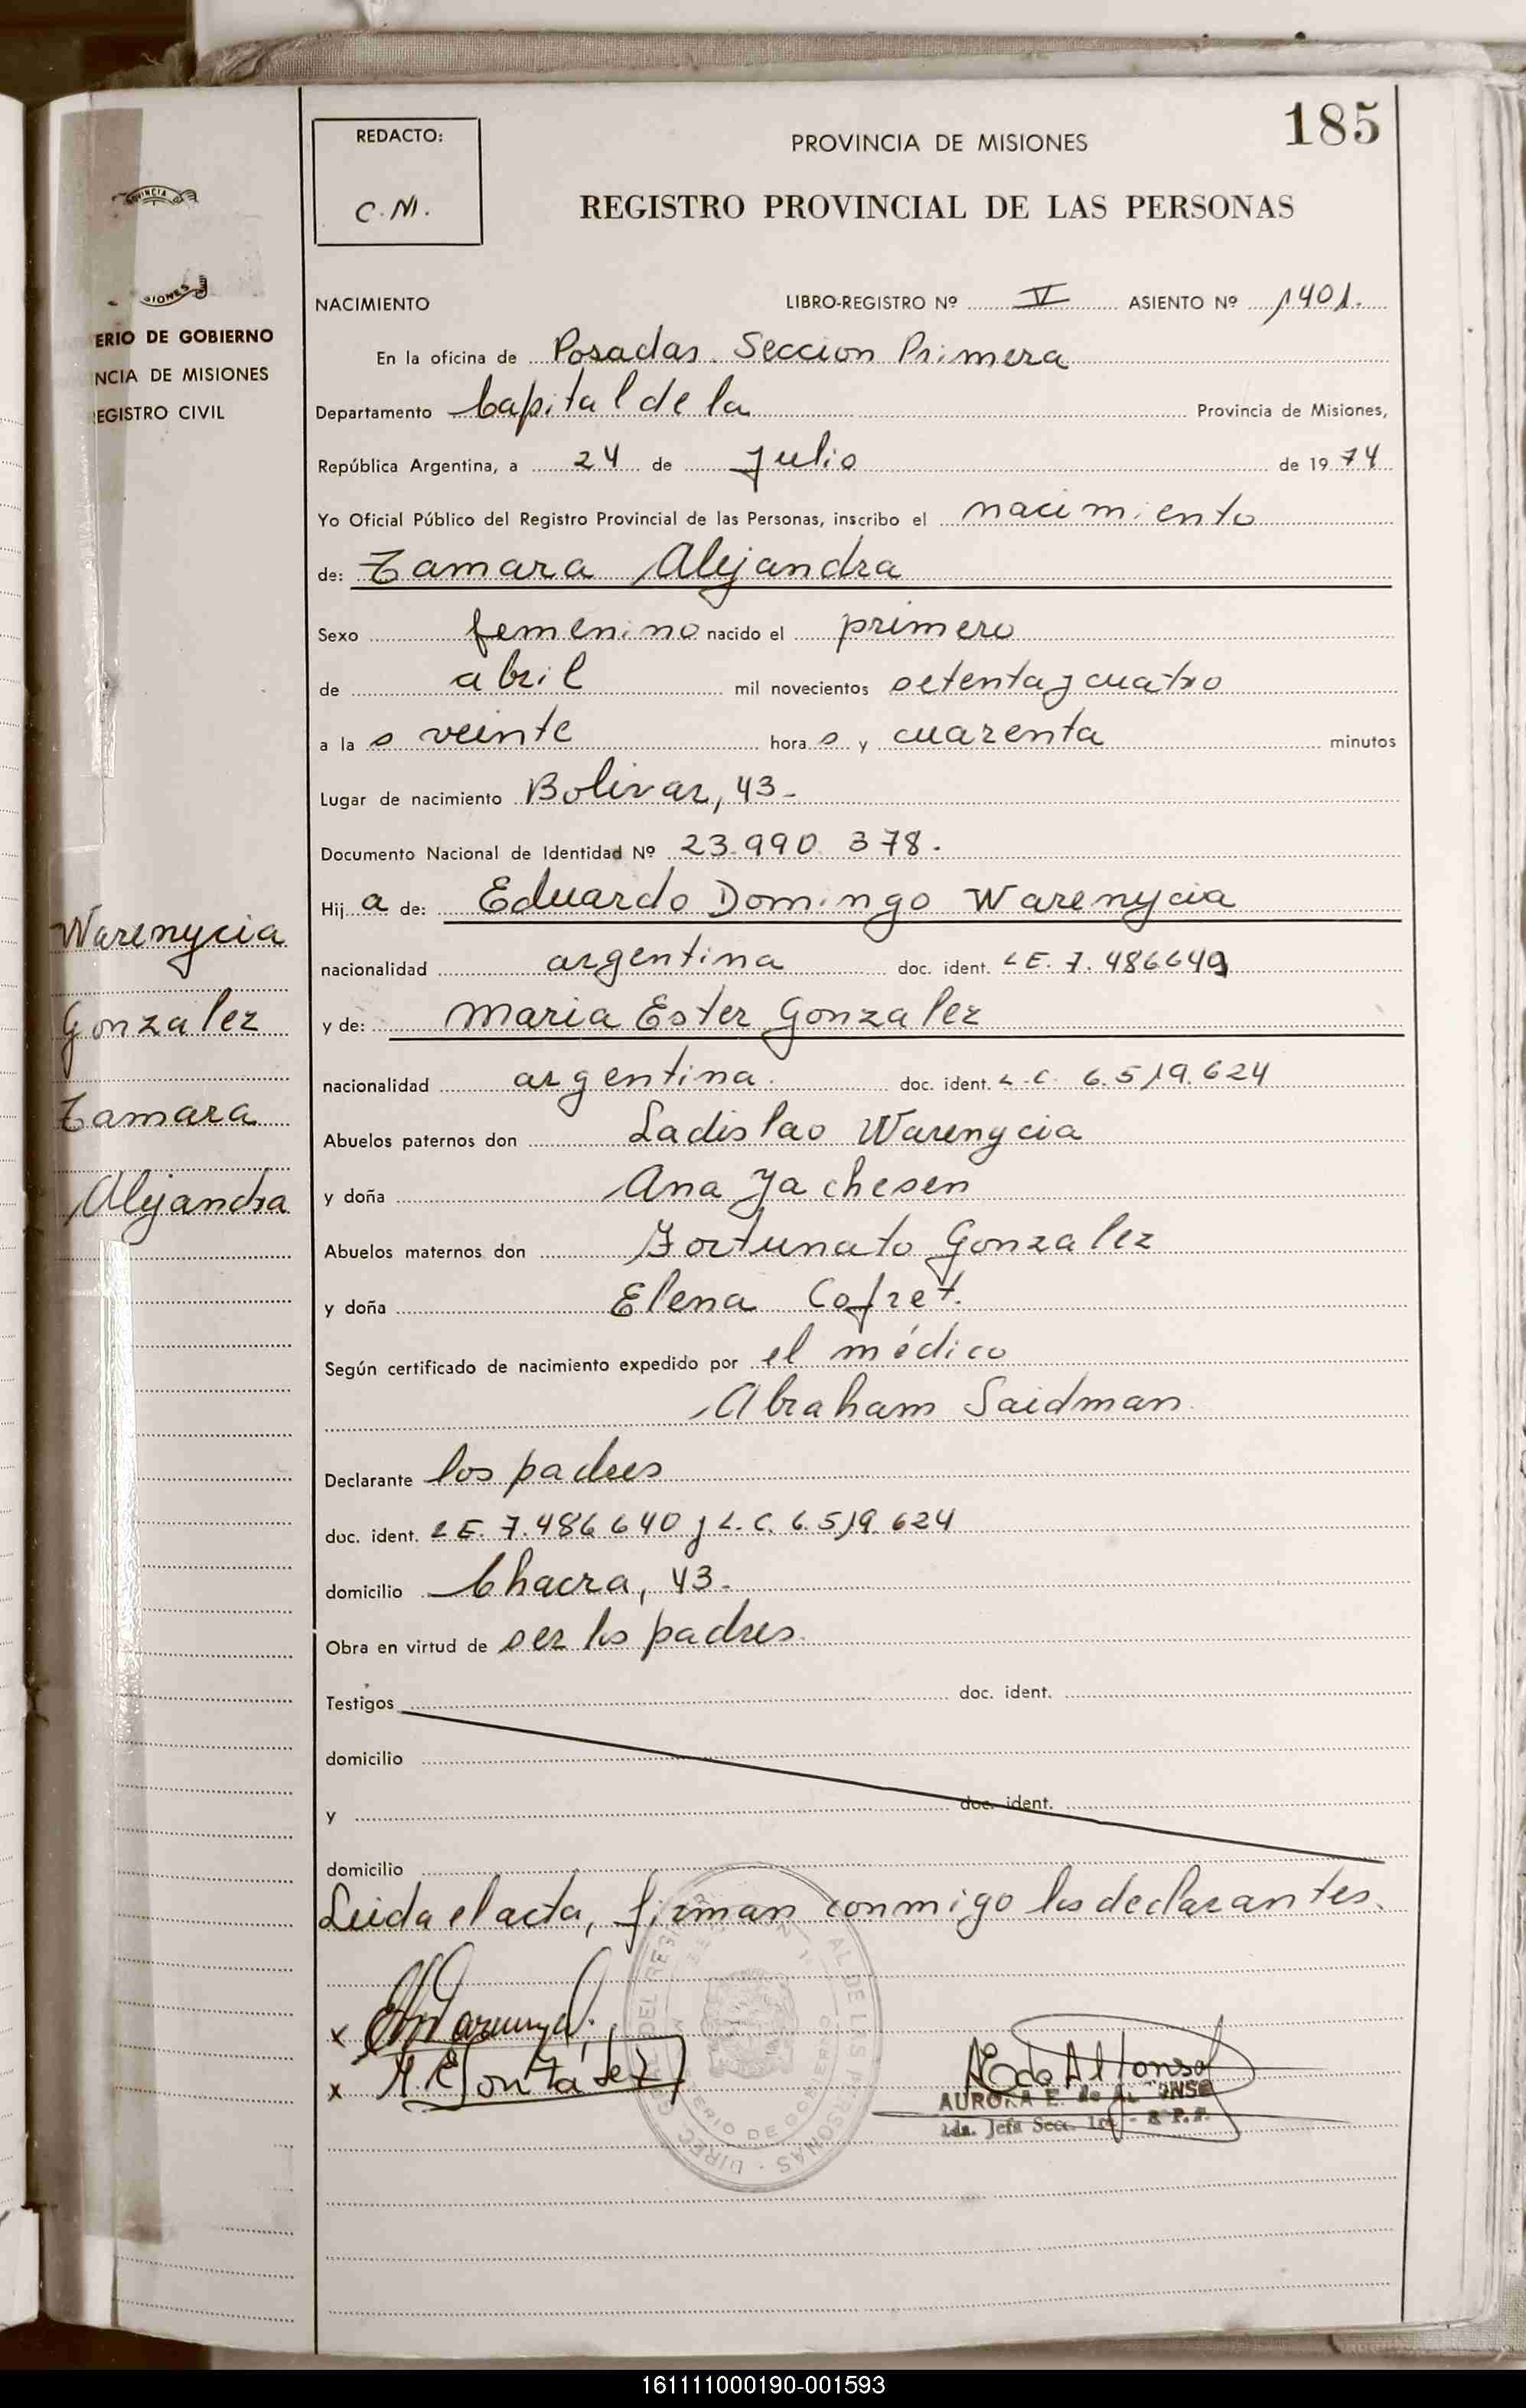 185
REDACTO:
C. M.
PROVINCIA DE MISIONES
REGISTRO PROVINCIAL DE LAS PERSONAS
VINCIA
SIONES
ERIO DE GOBIERNO
NCIA DE MISIONES
EGISTRO CIVIL
NACIMIENTO LIBRO-REGISTRO Nº V ASIENTO Nº 1401.
En la oficina de Posadas. Seccion Primera
Departamento Capital de la Provincia de Misiones,
República Argentina, a 24 de Julio de 19 74
Yo Oficial Público del Registro Provincial de las Personas, inscribo el nacimiento
de: Tamara Alejandra
Sexo femenino nacido el primero
de abril mil novecientos setenta y cuatro
a la s veinte hora s y cuarenta minutos
Lugar de nacimiento Bolivar, 43-
Documento Nacional de Identidad Nº 23.990.378.
Hij a de: Eduardo Domingo Warenycia
nacionalidad argentina doc. ident. L E. 7.486640
y de: Maria Ester Gonzalez
nacionalidad argentina. doc. ident. L.C. 6.519.624
Abuelos paternos don Ladislao Warenycia
y doña Ana Jachesen
Abuelos maternos don Fortunato Gonzalez
y doña Elena Cofret.
Según certificado de nacimiento expedido por el médico
Abraham Saidman
Declarante los padres
doc. ident. L E. 7.486.640 y L.C. 6.519.624
domicilio Chacra, 43-
Obra en virtud de ser los padres.
Testigos doc. ident.
domicilio
y doc. ident.
domicilio
Leida el acta, firman conmigo los declarantes.
Warenycia
Gonzalez
Tamara
Alejandra
x
x M E Gonzalez
A E de Alfonso
AURORA E. de ALFONSO
Jefa Secc. 1ra - R P. P.
161111000190-001593